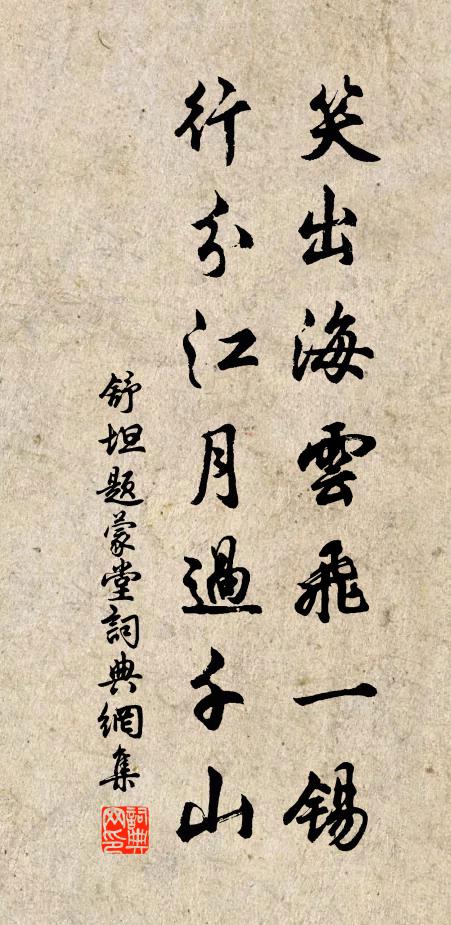 笑出海雲飛一錫
行分江月過千山
舒坦題蒙堂詞典網集
詞典網印